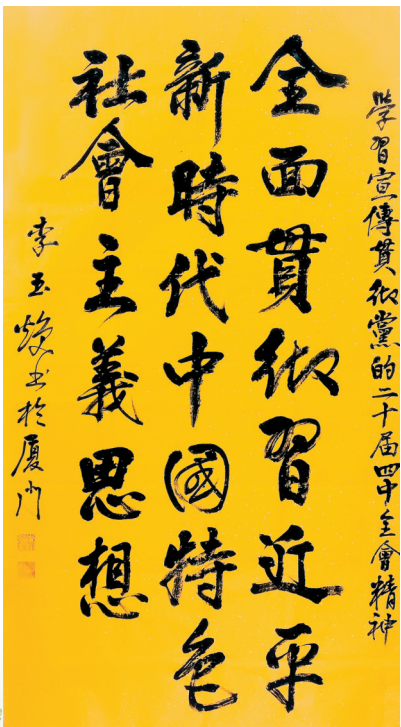 學習宣傳貫彻黨的二十届四中全會精神
全面貫彻習近平
新時代中國特色
社會主義思想
李玉书於厦门